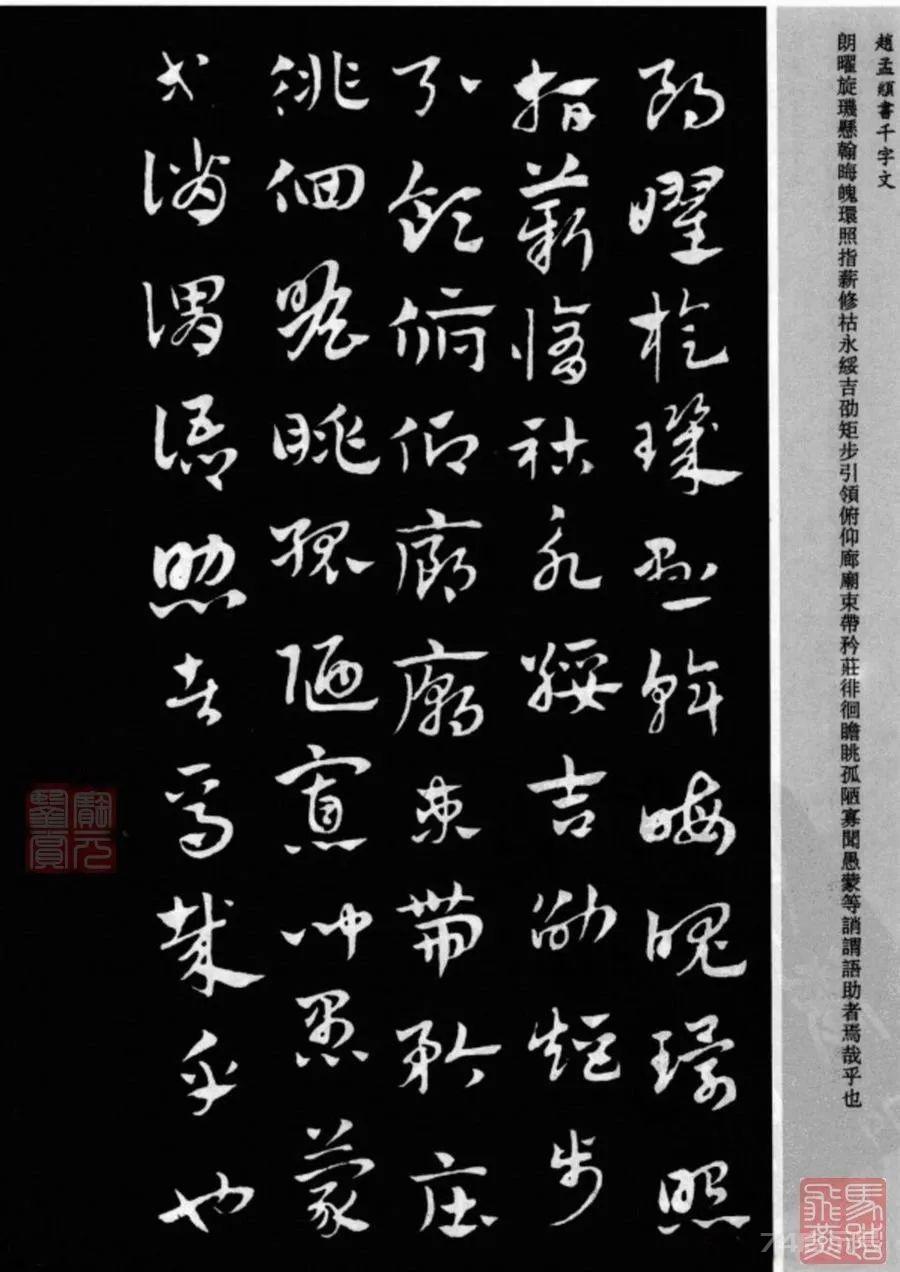 趙孟頫書千字文
朗曜旋璣懸翰晦魄環照指薪修祜永綏吉劭矩步引領俯仰廊廟束帶矜莊徘徊瞻眺孤陋寡聞愚蒙等誚謂語助者焉哉乎也
朗曜旋璣懸斡晦魄環照
指薪脩祜永綏吉劭矩步
引領俯仰廊廟束帶矜庄
徘徊瞻眺孤陋寡聞愚蒙
等誚謂語助者焉哉乎也